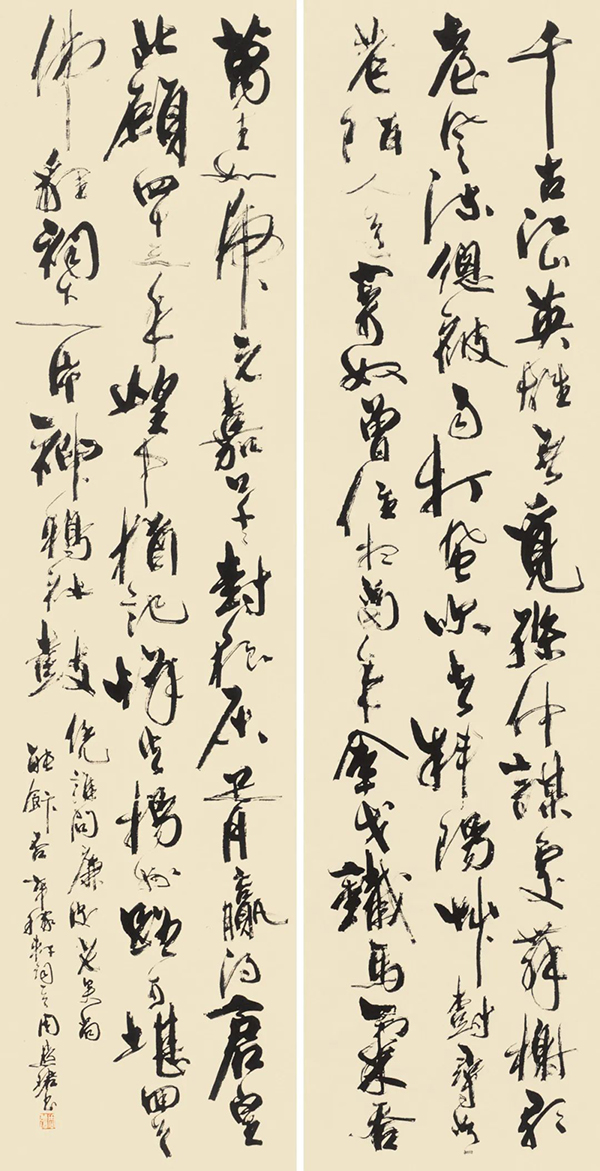 千古江山英雄無覓孫仲謀處舞榭歌
臺風流總被雨打風吹去斜陽艸樹尋常
巷陌人道寄奴曾住想當年金戈鐵馬氣吞
萬里如虎元嘉草草封狼居胥贏得倉皇
北顧四十三年望中猶記烽火揚州路可堪回首
佛貍祠下一片神鴉社鼓
憑誰問廉頗老矣尚
能飯否 辛稼軒詞 周慧珺書